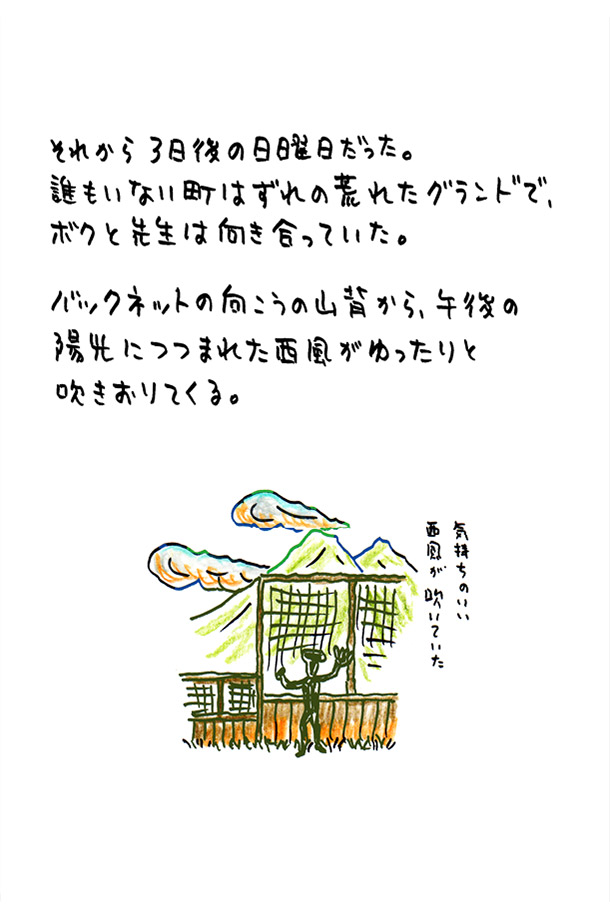 それから3日後の日曜日だった。
誰もいない町はずれの荒れたグランドで、
ボクと先生は向き合っていた。
バックネットの向こうの山背から、午後の
陽光につつまれた西風がゆったりと
吹きおりてくる。
気持ちのいい
西風が吹いていた